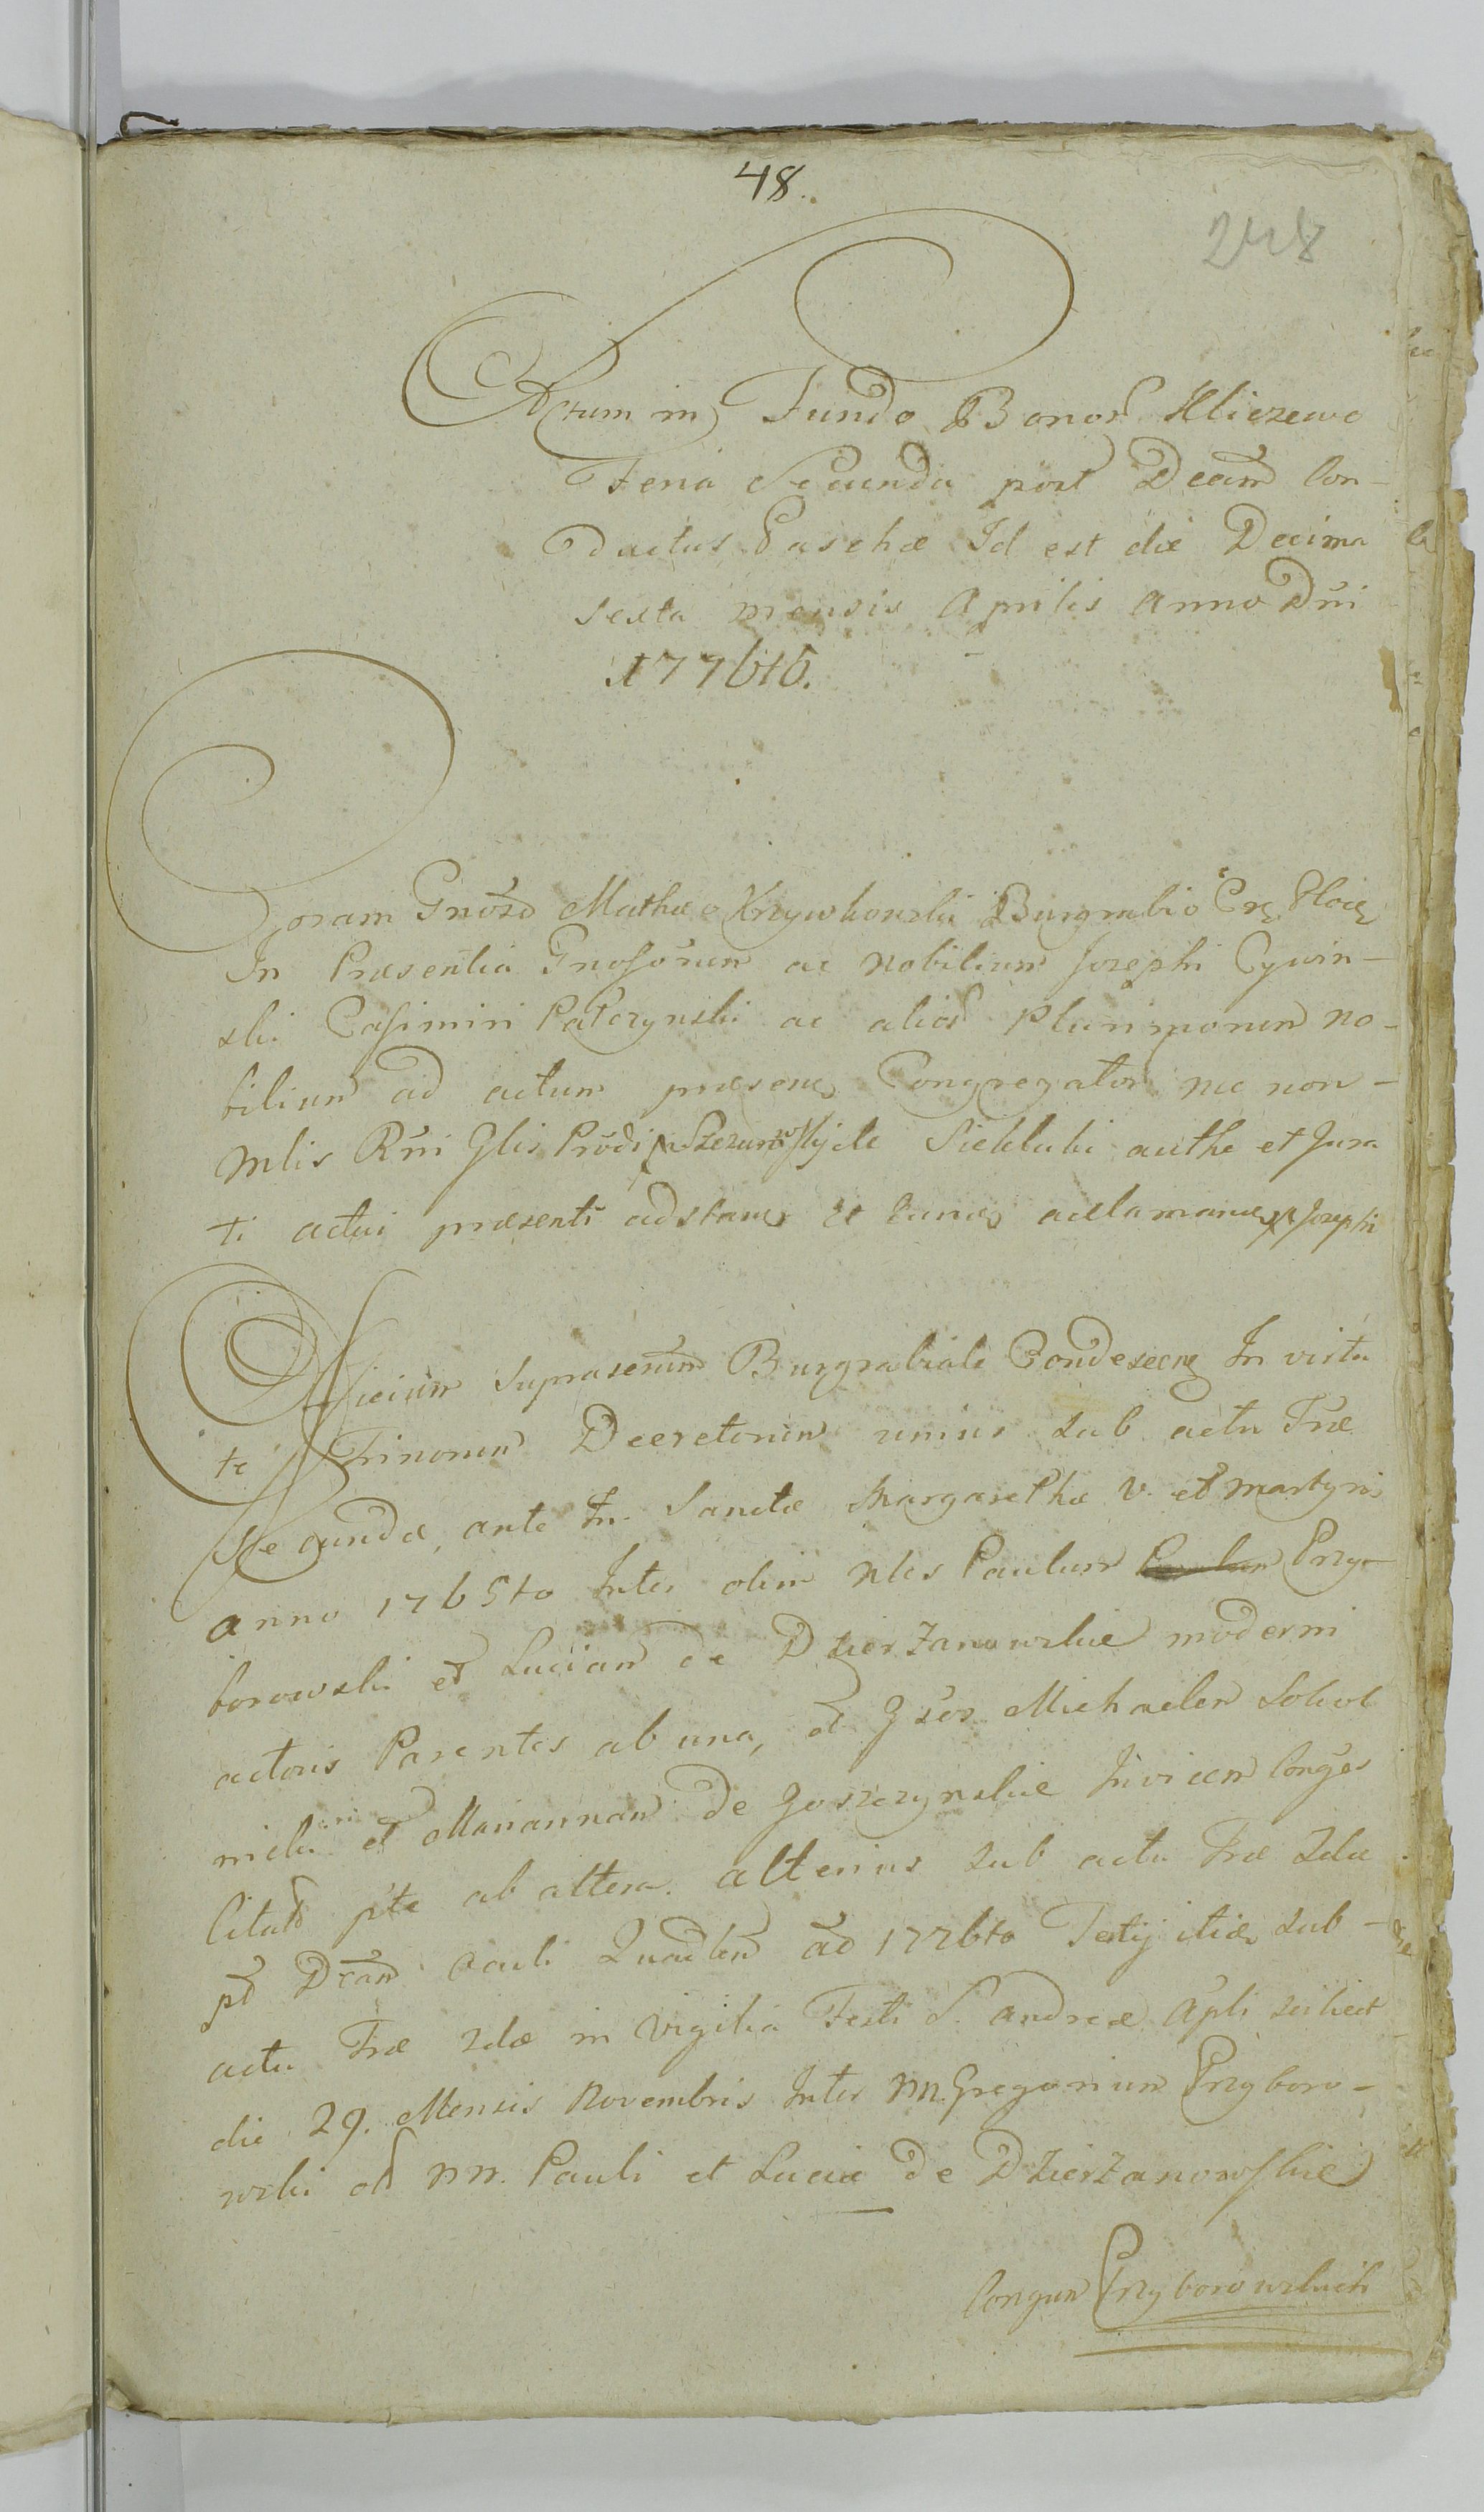 48.
248
Actum in Fundo Bonor Kliczewo
Feria Secunda post Dcam Con-
ductus Paschæ Id est die Decima
sexta mensis Aprilis anno Dni
1776to.
Coram Gnoso Mathæo Krzywkowski Burgrabio
In Præsentia Gnosorum ac Nobilium Josephi Cywin-
ski Casimiri Patczynski ac alior Plurimorum no-
bilium ad actum præsens Congregator nec non
Mlis Rni Glis Josephi Sieklucki authe et Jura
ti actui præsenti adstan et acclaman Josephi
Officium Suprascrium Burgrabiale Condescen In virtu
te Trinorum Decretorum unius sub actu Fræ
Secundæ ante Fn. Sanctæ Margarethæ V. et Martyris
anno 1765to Inter olim Nles Paulum Przy-
borowski et Luciam de Dzierzanowskie moderni
actoris Parentes ab una, et Gsos Michaelem Sokol
nicki et Mariannam de Goszczynskie Invicem Conges
Citat pte ab altera. alterius sub actu Fræ 2dæ
pt Dcam Oculi Quadlem ao 1776to Tertij itidem sub-
actu Fræ 2dæ in Vigilia Festi S. Andreæ Apli scilicet
die 29. Mensis Novembris Inter nn. Gregorium Przyboro-
wski olim nn. Pauli et Luciæ de Dzierzanowskie
Congum Przyborowskich